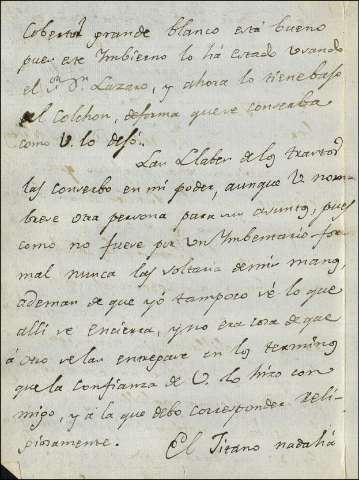 Cobertor grande blanco está bueno
pues este Imbierno lo há estado usando
el Sr. Dn. Lazaro, y ahora lo tiene baso
el Colchon, deforma que se conserba
como V. lo desó.
Las Llabes de los trastos
las conserbo en mi poder, aunque V. nom-
brese otra persona para sus asuntos, pues
como no fuese por un Imbentario for-
mal nunca las soltaria de mis manos,
ademas de que yó tampoco sé lo que
alli se encierra, y no era cosa de que
á otro se las entregase en los terminos
que la confianza de V. lo hizo con
migo, y á la que debo corresponder Reli-
giosamente. El Titano nada há